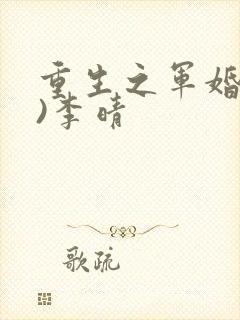 重生之军婚
)李晴
歌疏